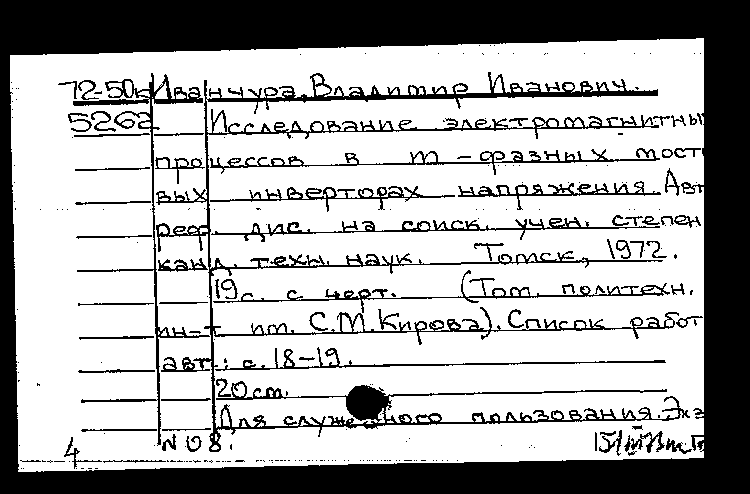 72-50к Иванчура, Владимир Иванович.
5262 Исследование электромагнитны
процессов в m-фазных мост
вых инверторах напряжения. Авт
реф. дис. на соиск. учен. степен
канд. техн. наук. Томск, 1972.
19 с. с черт. (Том. политехн.
ин-т им. С.М. Кирова). Список работ
авт.: с. 18-19.
20 см.
Для служебного пользования. Экз
4 N 08.